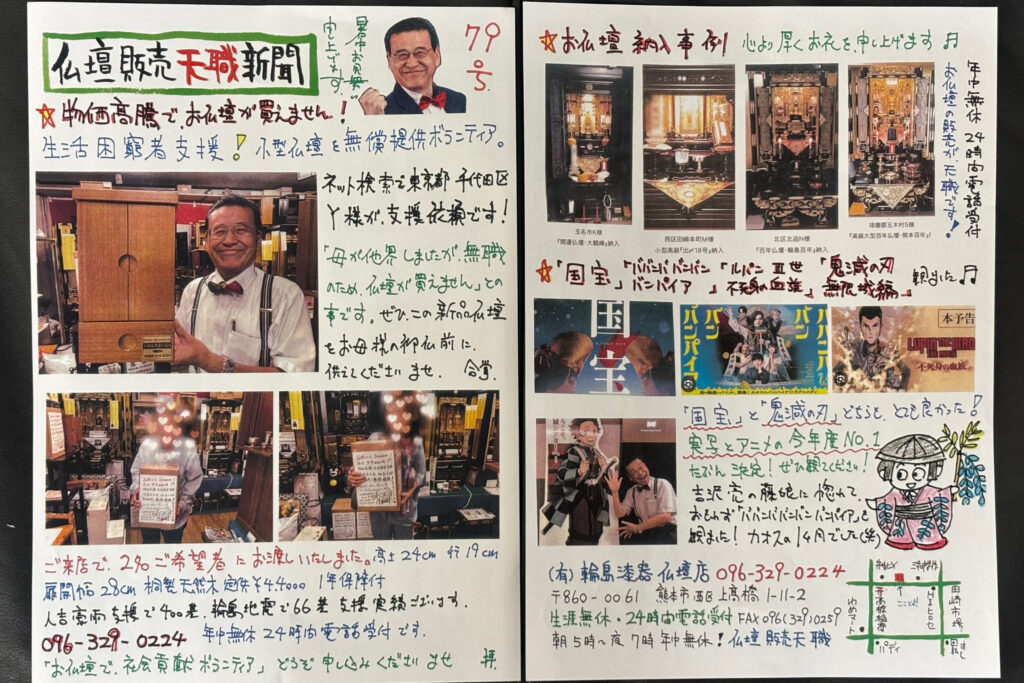 仏壇販売天職新聞
暑中お見舞
申し上げます。
79号
物価高騰で、お仏壇が買えません。!
生活困窮者支援! 小型仏壇を無償提供ボランティア。
ネット検索で東京都千代田区
Y様が、支援依頼です!
「母が他界しましたが、無職
のため、仏壇が買えません」との
事です。ぜひ、この新品仏壇
をお母様の御仏前に、
供えてくださいませ. 合掌.
ご来店で、2名ご希望者にお渡しいたしました。高さ24cm 行19cm
扉開幅28cm 桐製天然木 定価¥44,000 1年保障付
人吉豪雨支援で400基、輪島地震で66基支援実績ございます。
096-329-0224 年中無休24時間電話受付です.
「お仏壇で、社会貢献ボランティア」どうぞ申し込みくださいませ 拝.
お仏壇納入事例 心より厚くお礼を申し上げます♬
年中無休 24時間電話受付
お仏壇の販売が、天職です!
玉名市K様
『開運仏壇・大観峰』納入
西区田崎本町M様
小型高級『出〆18号』納入
北区北迫N様
『百年仏壇・輪島百年』納入
球磨郡五木村S様
『高級大型百年仏壇・熊本百年』
「国宝」「ババンババンバンバンパイア」「ルパン三世不死身の血族」「鬼滅の刃無限城編」観ました♬
国宝
ババンババンバンバンパイア
本予告
LUPIN THE IIIRD
不死身の血族
「国宝」と「鬼滅の刃」どちらも、とても良かった!
実写とアニメの今年度No.1
たぶん決定!ぜひ観てください!
吉沢亮の藤娘に惚れて、
おもわず「ババンババンバンバンパイア」も
観ました!カオスの1ヶ月でした(笑)
(有)輪島漆器仏壇店 096-329-0224
〒860-0061 熊本市西区上高橋1-11-2
生涯無休・24時間電話受付 FAX096(329)0259
朝5時〜夜7時年中無休!仏壇販売天職
ここだ!
田崎市場